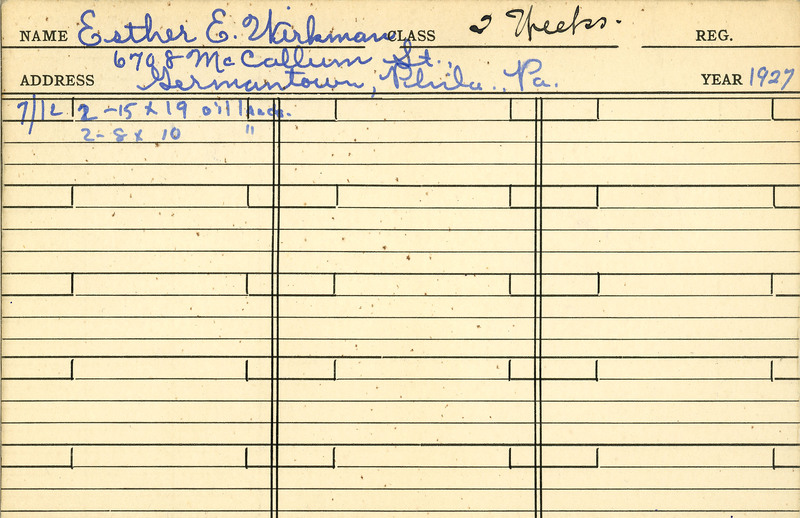 NAME Esther E. Kirkman CLASS 2 Weeks. REG.
6708 McCallum St.,
ADDRESS Germantown, Phila., Pa. YEAR 1927
7/12 2-15 x 19 oil
2-8 x 10 "